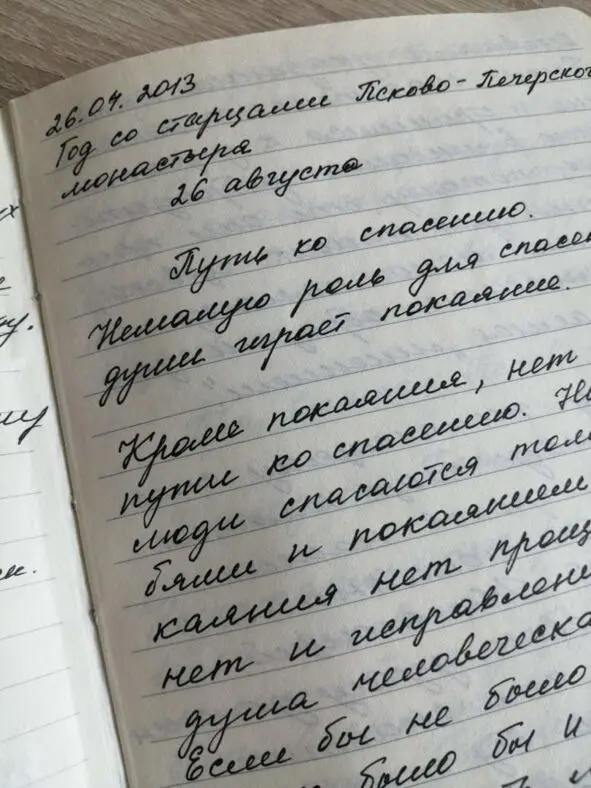 26.04. 2013
Год со старцами Псково-Печерского
монастыря
26 августа
Путь ко спасению.
Немалую роль для спасен
души играет покаяние.
Кроме покаяния, нет
пути ко спасению. Н
люди спасаются тол
бями и покаянием
каяния нет проще
нет и исправлени
душа человеческа
Если бы не было
было бы и